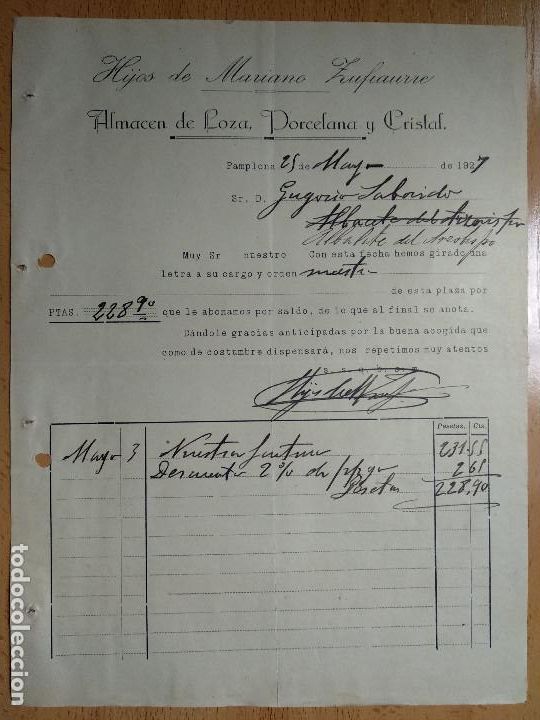 Hijos de Mariano Zufiaurre
Almacen de Loza, Porcelana y Cristal.
Pamplona 25 de Mayo de 1927
Sr. D. Gregorio Saborido
Albacete del Arzobispo
Albalate del Arzobispo
Muy Sr nuestro Con esta fecha hemos girado una
letra a su cargo y orden nuestra
de esta plaza por
PTAS. 228 90 que le abonamos por saldo, de lo que al final se anota.
Dándole gracias anticipadas por la buena acogida que
como de costumbre dispensará, nos repetimos muy atentos
Hijos de
Pesetas. Cts.
Mayo 3 Nuestra factura 231.55
Descuento 2% 2 61
Pesetas 228,90
todocoleccion